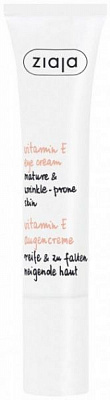 ziaja
vitamin E
eye cream
mature &
wrinkle-prone
skin
vitamin E
augencreme
reife & zu falten
neigende haut